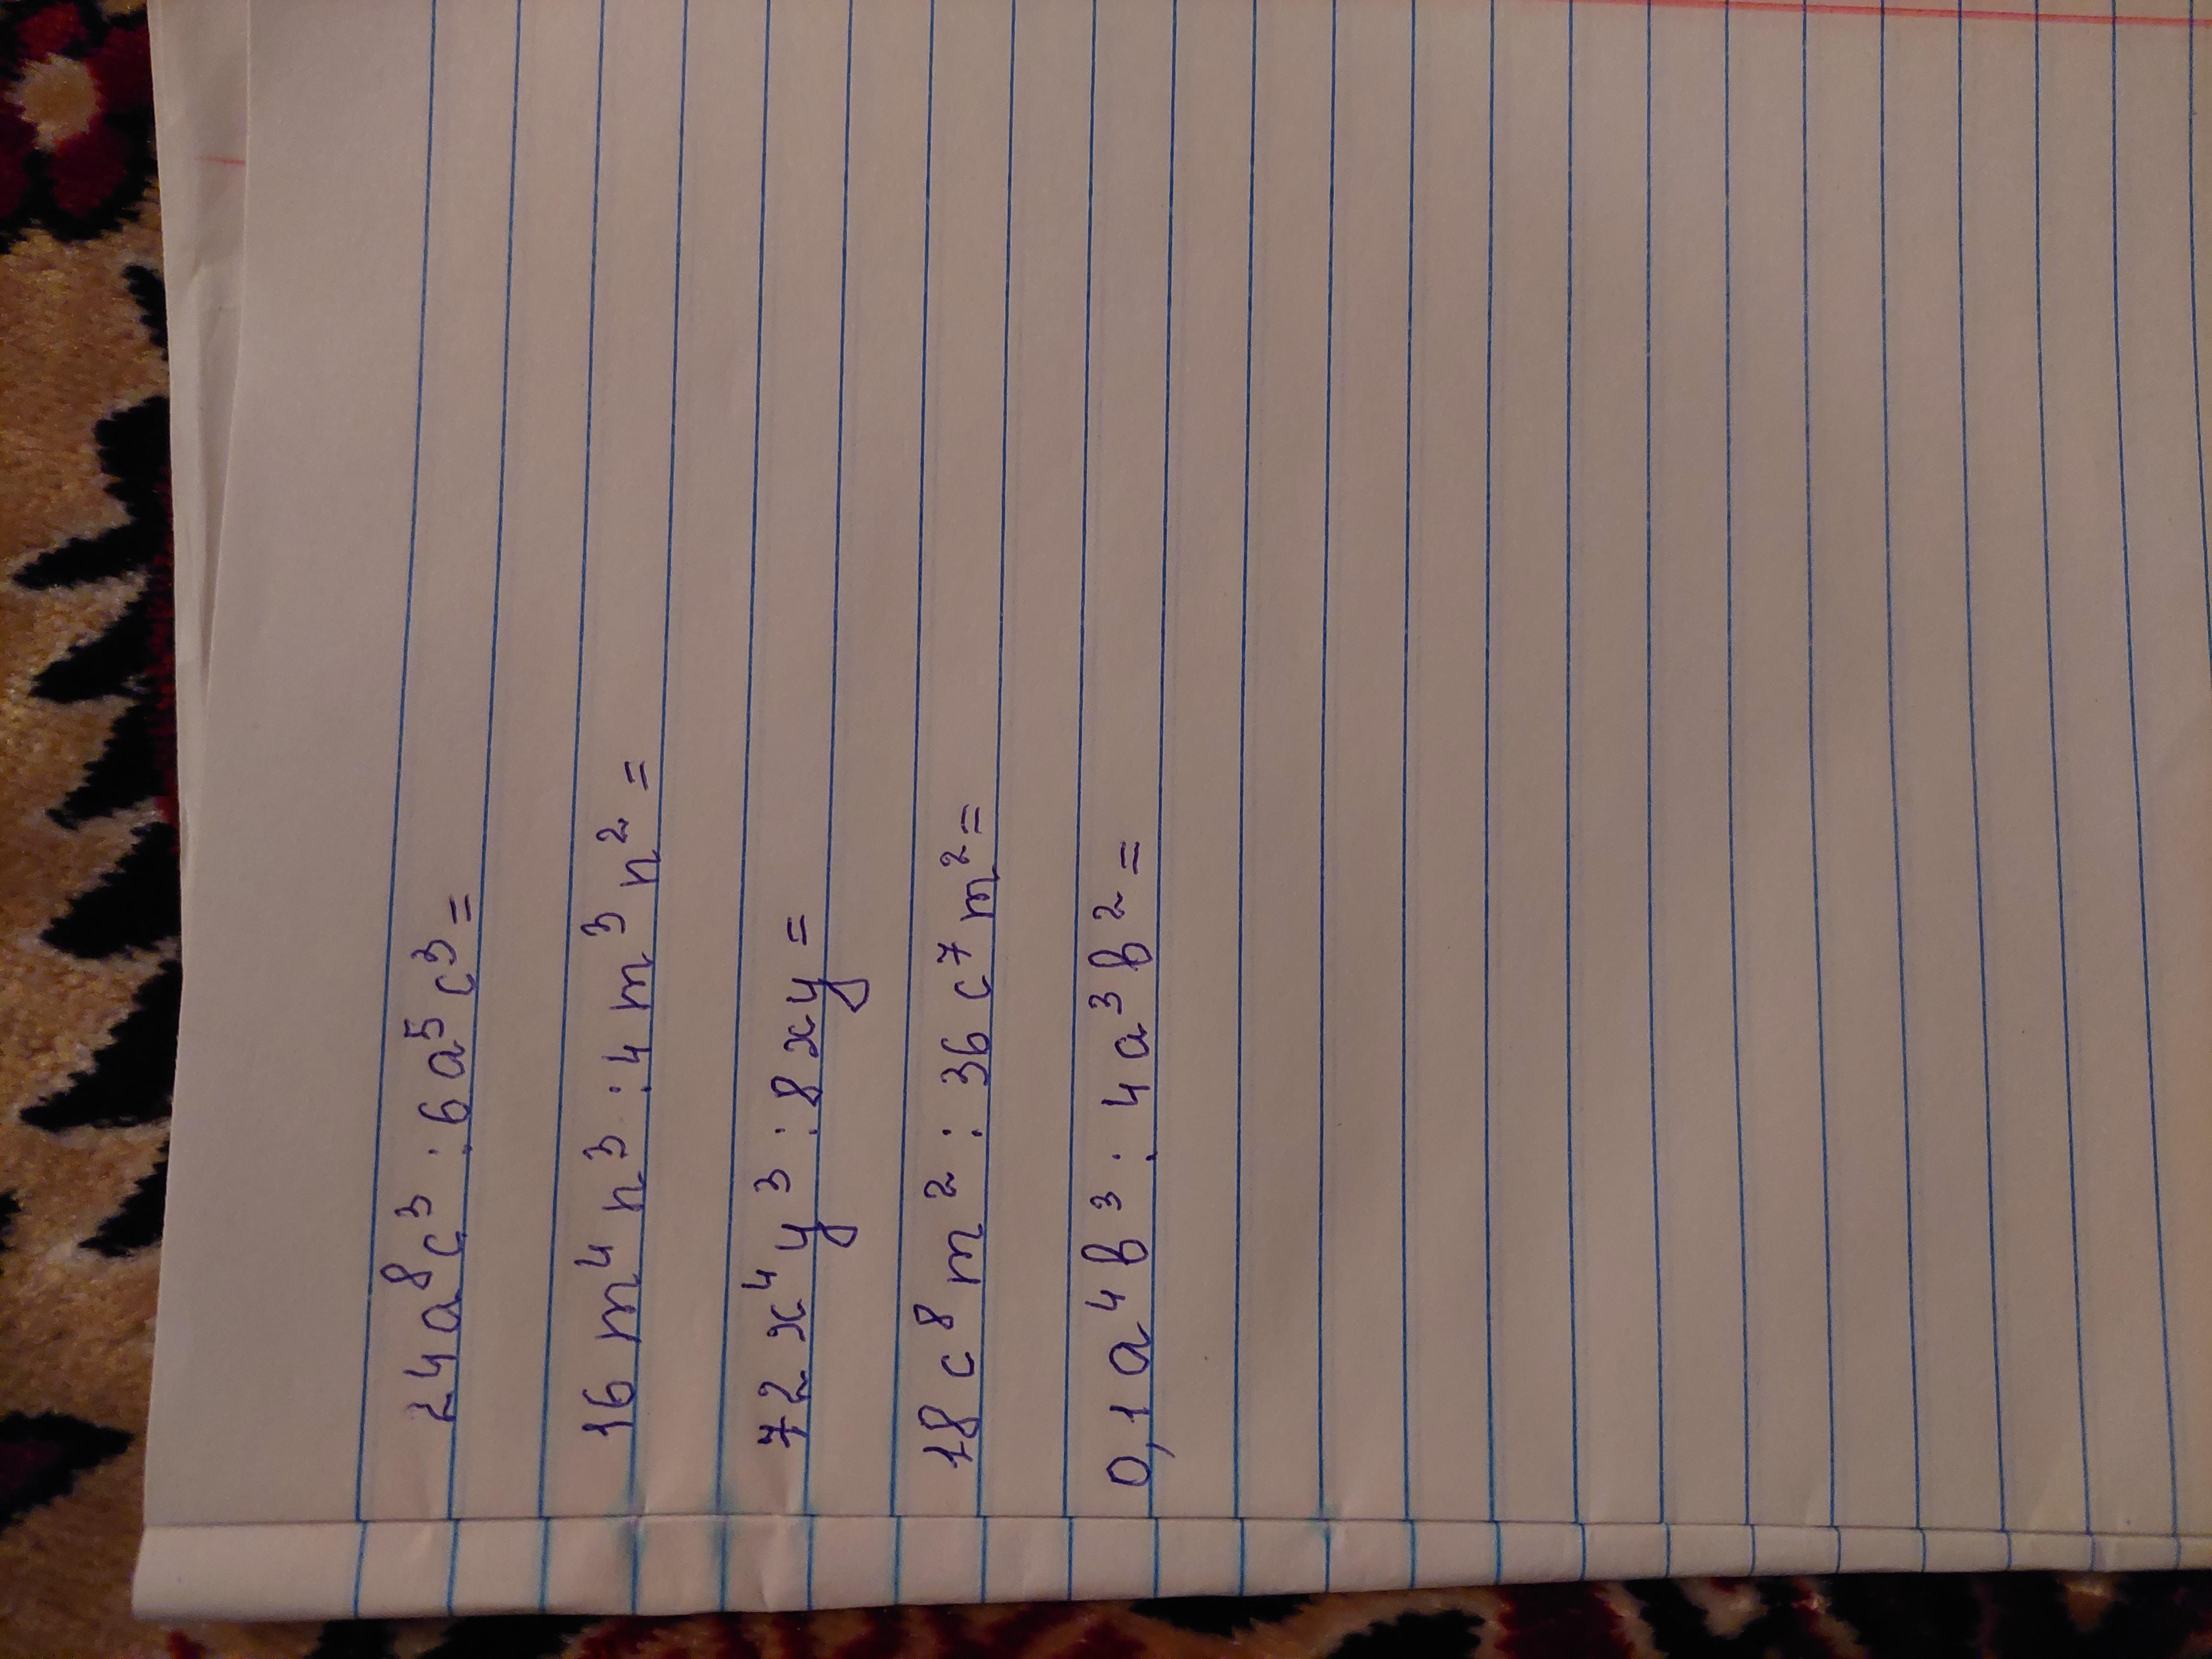 24a⁸c³ : 6a⁵c³ =
16 m⁴ n³ : 4 m³ n² =
72 x⁴ y³ : 8 x y =
18 c⁸ m² : 36 c⁷ m² =
0,1 a⁴ b³ : 4 a³ b² =